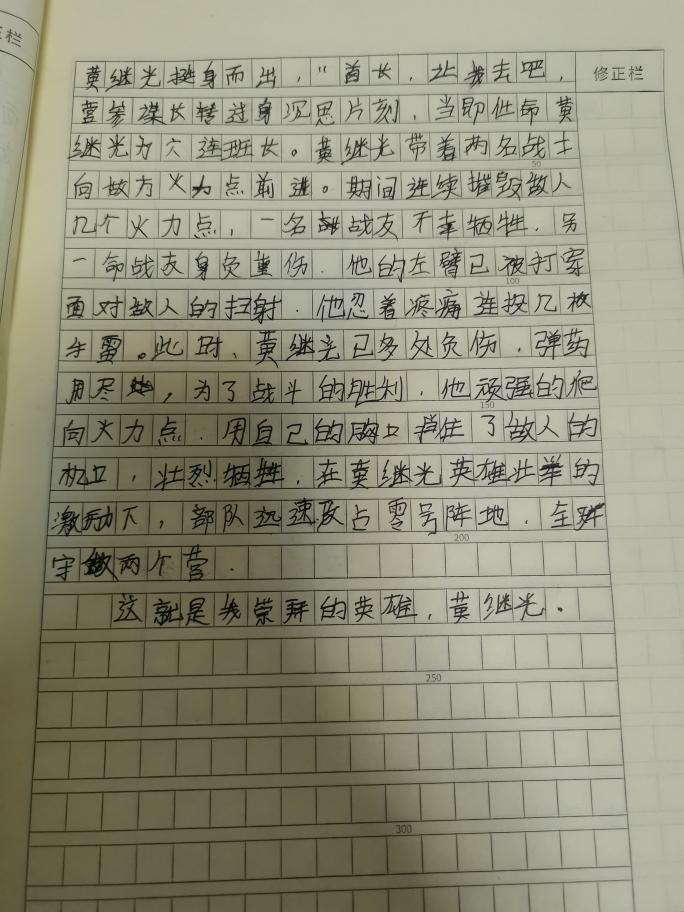 正栏
黄继光挺身而出，“首长，让我去吧，
修正栏
营参谋长转过身沉思片刻，当即任命黄
继光为六连班长。黄继光带着两名战士
50
向敌方火力点前进。期间连续摧毁敌人
几个火力点，一名战友不幸牺牲.另
一命战友身负重伤.他的左臂已被打穿
100
面对敌人的扫射.他忍着疼痛连投几枚
手雷。此时、黄继光已多处负伤，弹药
用尽，为了战斗的胜利，他顽强的爬
150
向火力点.用自己的胸口挡住了敌人的
机口，壮烈牺牲，在黄继光英雄壮举的
激励下，部队迅速攻占零号阵地，全歼
200
守敌两个营.
这就是我崇拜的英雄，黄继光。
250
300